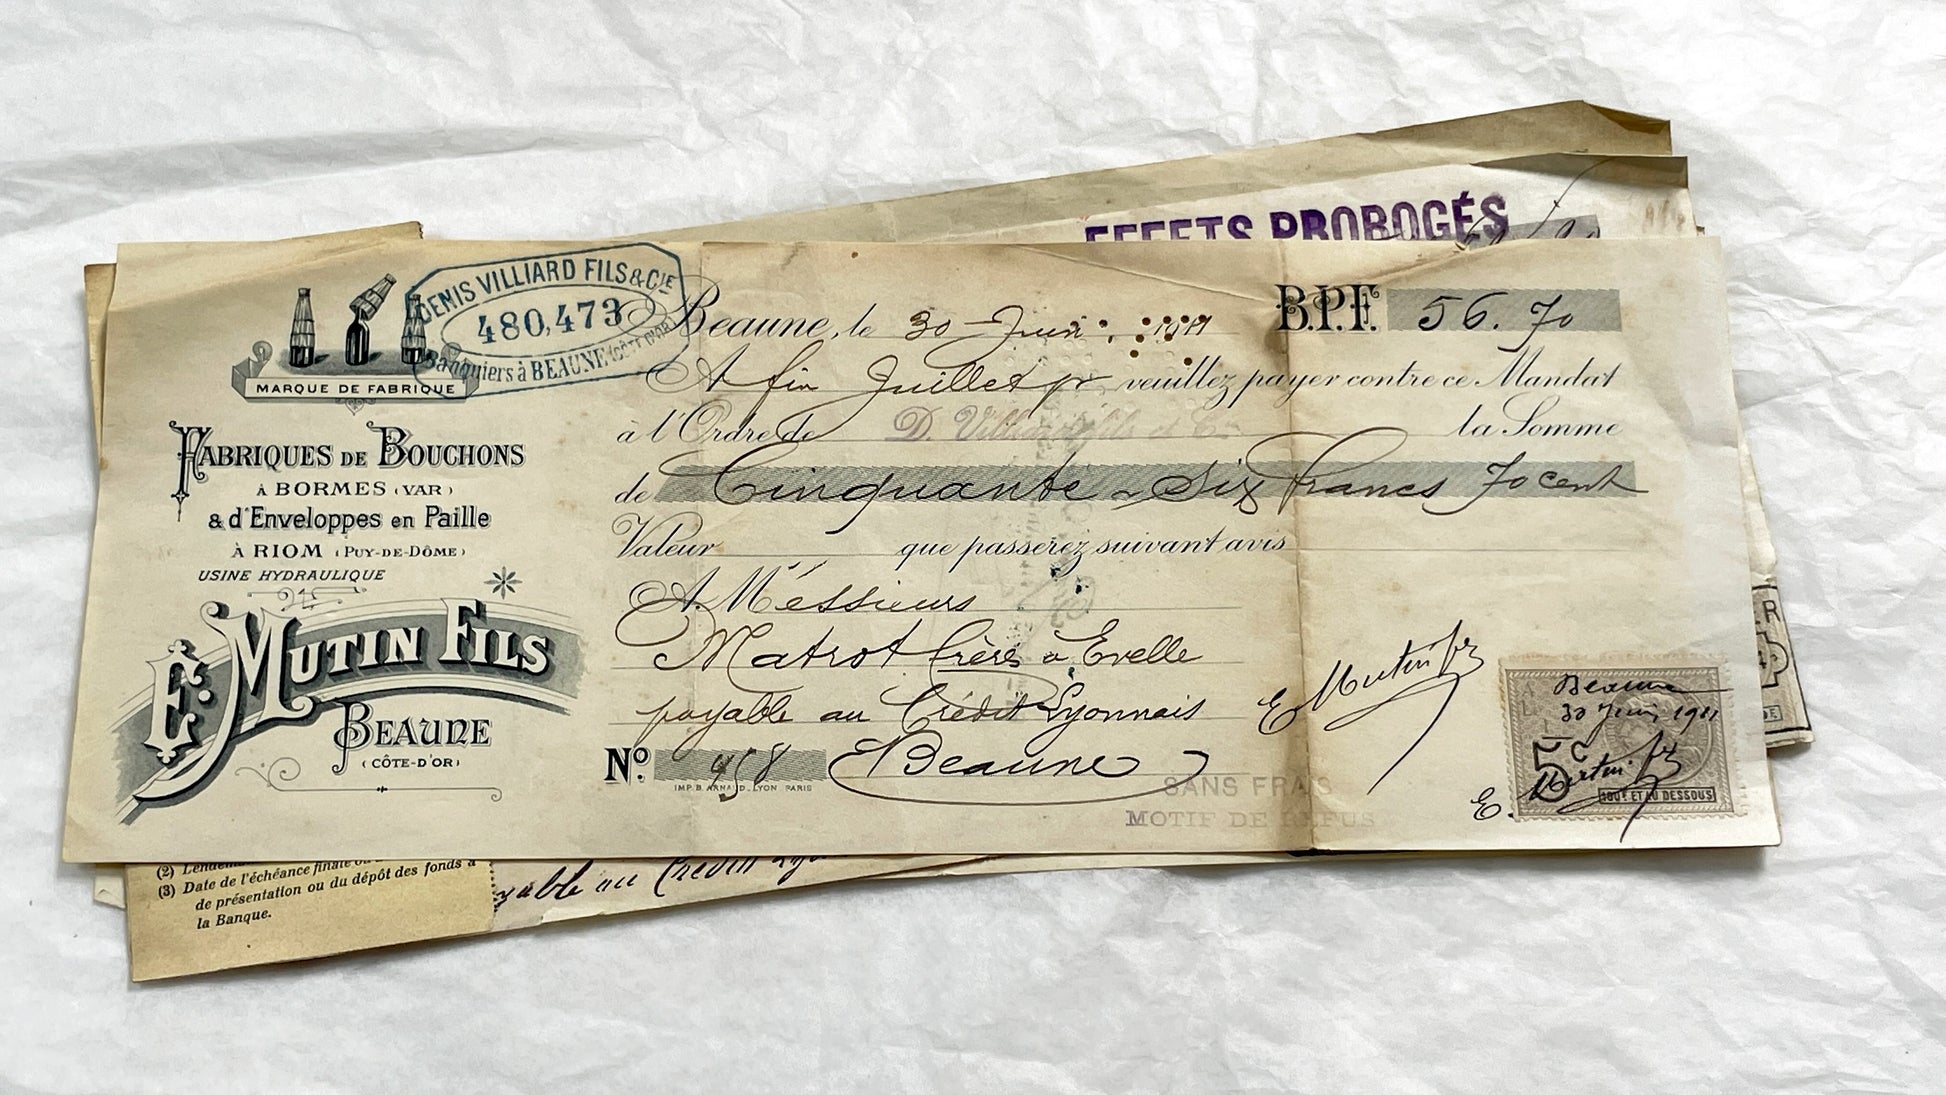 EFFETS PROROGÉS
DENIS VILLIARD FILS & CIE
480,473
Banquiers à BEAUNE (CÔTE D'OR)
MARQUE DE FABRIQUE
FABRIQUES DE BOUCHONS
À BORMES (VAR)
& d'Enveloppes en Paille
À RIOM (PUY-DE-DÔME)
USINE HYDRAULIQUE
E. MUTIN FILS
BEAUNE
(CÔTE-D'OR)
Beaune, le 30 Juin 1911
B.P.F. 56.70
A fin Juillet pr veuillez payer contre ce Mandat
à l'Ordre de D. Villiard fils et Cie la Somme
de Cinquante-Six francs 70 cent
Valeur que passerez suivant avis
A Messieurs
Matrot frères à Evelle
payable au Crédit Lyonnais
No. 958 Beaune
IMP. B. ARNAUD, LYON PARIS
SANS FRAIS
MOTIF DE REFUS
E Mutin fils
Beaune
30 Juin 1911
5c
E. Mutin fils
100F ET AU DESSOUS
(3) Date de l'échéance finale ou
de présentation ou du dépôt des fonds à
la Banque.
payable au Crédit Lyo